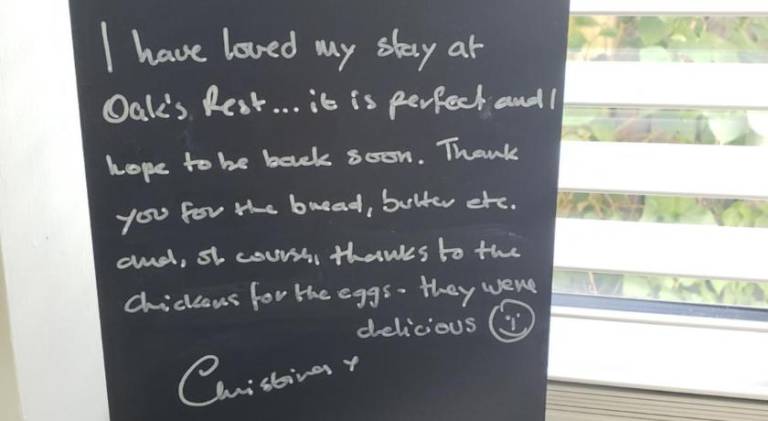 I have loved my stay at
Oak's Rest... it is perfect and I
hope to be back soon. Thank
you for the bread, butter etc.
and, of course, thanks to the
chickens for the eggs - they were
delicious ☺
Christina x